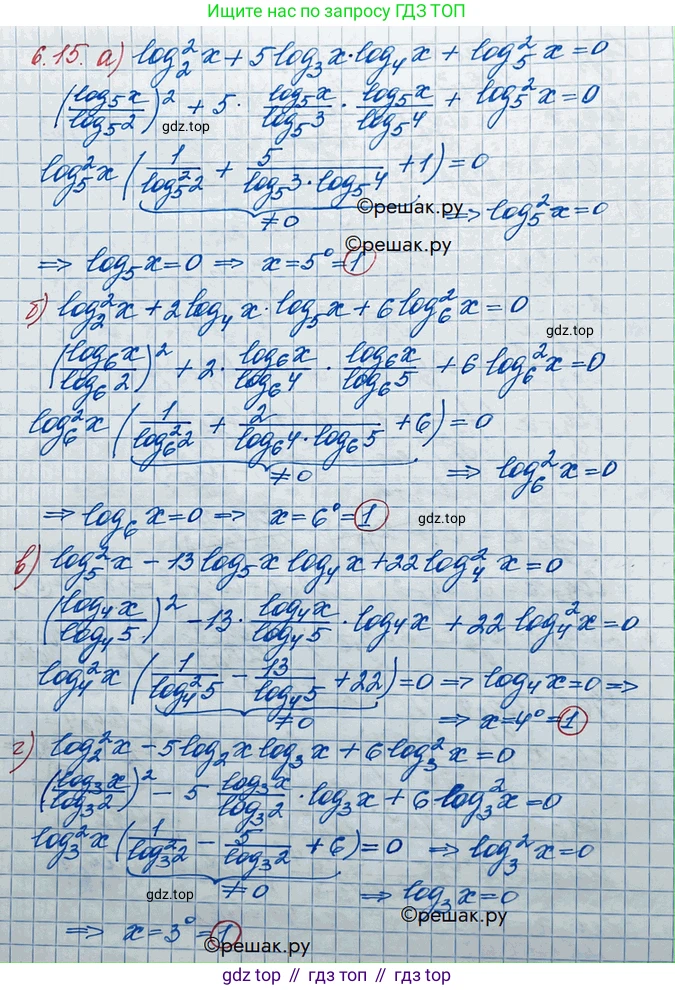 Ищите по запросу ГДЗ ТОП
6.15. а) log₂²x + 5log₃x·log₄x + log₅²x = 0
(log₅x/log₅2)² + 5 · log₅x/log₅3 · log₅x/log₅4 + log₅²x = 0
gdz.top
log₅²x (1/log₅²2 + 5/(log₅3·log₅4) + 1) = 0
©решак.ру
≠0 ⇒ log₅²x = 0
©решак.ру
⇒ log₅x = 0 ⇒ x = 5⁰ = 1
б) log₂²x + 2log₄x·log₅x + 6log₆²x = 0
gdz.top
(log₆x/log₆2)² + 2 · log₆x/log₆4 · log₆x/log₆5 + 6log₆²x = 0
log₆²x (1/log₆²2 + 2/(log₆4·log₆5) + 6) = 0
≠0 ⇒ log₆²x = 0
⇒ log₆x = 0 ⇒ x = 6⁰ = 1
gdz.top
в) log₅²x − 13log₅x log₄x + 22log₄²x = 0
(log₄x/log₄5)² − 13 · log₄x/log₄5 · log₄x + 22log₄²x = 0
log₄²x (1/log₄²5 − 13/log₄5 + 22) = 0 ⇒ log₄x = 0 ⇒
≠0 ⇒ x = 4⁰ = 1
г) log₂²x − 5log₂x log₃x + 6log₃²x = 0
(log₃x/log₃2)² − 5 log₃x/log₃2 · log₃x + 6log₃²x = 0
log₃²x (1/log₃²2 − 5/log₃2 + 6) = 0 ⇒ log₃²x = 0
gdz.top
≠0 ⇒ log₃x = 0
©решак.ру
⇒ x = 3⁰ = 1
©решак.ру
gdz top // гдз топ // гдз.top